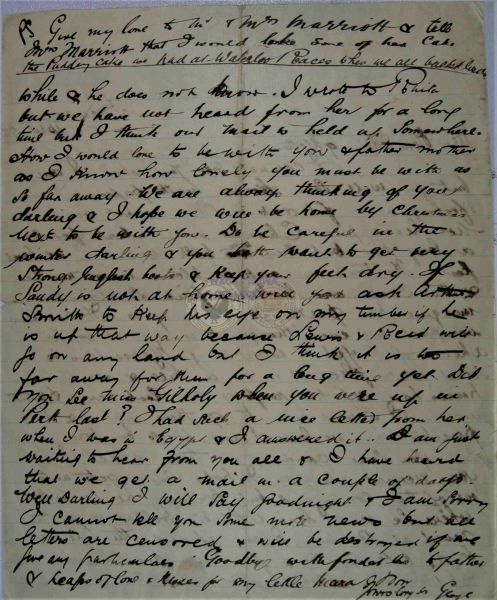 PS Give my love to Mr & Mrs Marriott & tell
Mrs Marriott that I would like some of her Cake
the Pudding cake we had at Waterloo Races when we all
while & he does not know. I wrote to
but we have not heard from her for a long
time but I think our mail is held up Somewhere.
How I would love to be with you & father mother
as I know how lonely you must be with us
so far away. We are always thinking of you
darling & I hope we will be home by Christmas
next to be with you. Do be careful in the
winter darling & you both want to get very
Strong English boots & keep your feet dry. If
Sandy is not at home will you ask Arthur
Smith to keep his eye on my timber if he
is up that way because Lewis & Reid will
go on any land but I think it is to
far away for them for a long time yet. Did
you see Miss Gilloly when you were up in
Perth last? I had such a nice letter from her
when I was in Egypt & I answered it. I am just
waiting to hear from you all & I have heard
that we get a mail in a couple of days.
Well Darling I will say goodnight & I am sorry
I cannot tell you some more news but all
letters are censored & will be destroyed if we
give any particulars Goodbye with fondest love to father
& heaps of love & kisses for my little
George